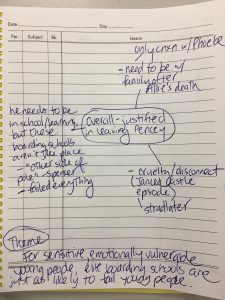 Date
Day
Per.
Subject
Bk.
Lesson
only cnxn w/ Phoebe
- need to be w/
family after
Allie's death
Overall - justified
in leaving Pencey
he needs to be
in school/learning
but these
boarding schools
aren't the place
- "other side of
pole" - Spencer
- failed everything
- cruelty/disconnect
(James Castle
episode)
- stradlater
Theme
For sensitive emotionally vulnerable
young people, elite boarding schools are
just as likely to fail young people.